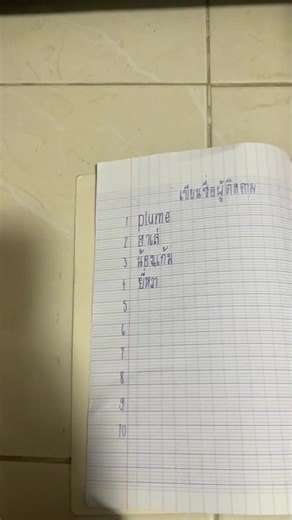 เขียนชื่อผู้ติดตาม
1 plume
2 ฮาเล่
3 น้องแก้ม
4 ยี่หวา
5
6
7
8
9
10